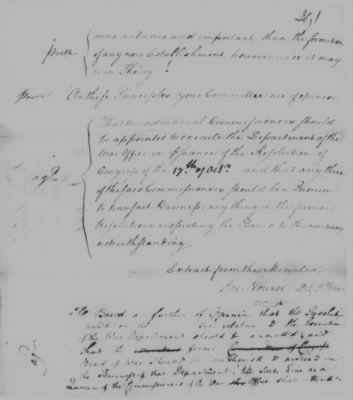 291
more arduous and important, than the formation
of any new Establishment, however nice it may
be in Theory!
On these Principles your Committee are of opinion
That two additional Commissioners should
be appointed to execute the Department of the
War Office in pursuance of the Resolution of
Congress of the 17th of Octr. and that any three
of the said Commissioners should be a Quorum
to transact Business, any thing in the former
Resolutions respecting the Board to the contrary
notwithstanding.
Extract from the Minutes,
Jos. Nourse
The Board is farther of Opinion that the Resolution
passed on the relative to the Execution
of the War Department should be annulled; and
that the former
Board of War should be authorised to proceed in
the Business of that Department; till such time as a
Quorum of the Commissioners of the War Office shall